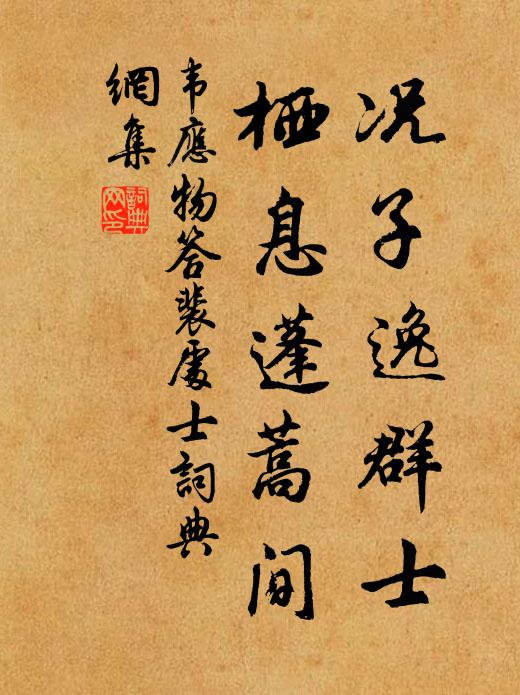 况子逸群士
栖息蓬蒿间
韦應物答裴處士詞典
網集
詞典
网印